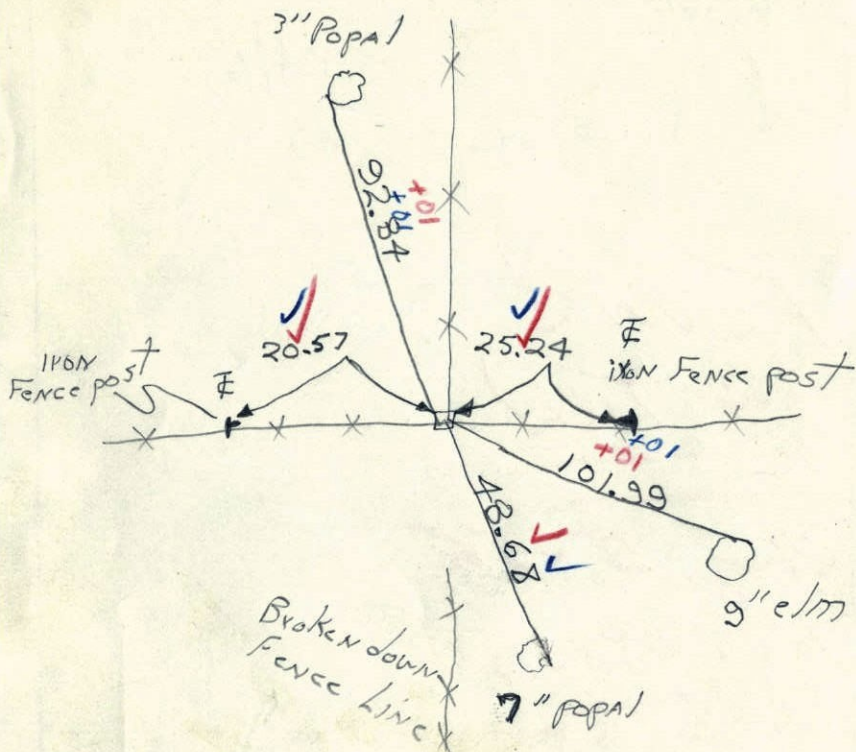 3" Popal
92.84
+01
+01
20.57
25.24
Iron
Fence post
℄
℄
iron Fence post
+01
+01
101.99
48.68
9" elm
Broken down
Fence Line
7" popal